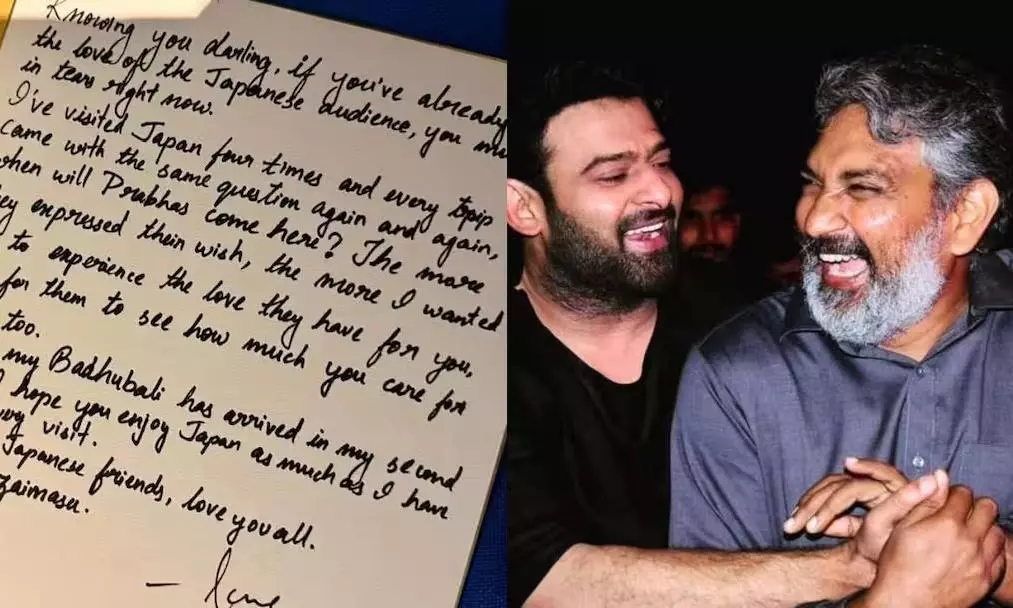 Knowing you darling, if you've already
the love of the Japanese audience, you mu
in tears right now.
I've visited Japan four times and every trip
came with the same question again and again,
when will Prabhas come here? The more
ey expressed their wish, the more I wanted
to experience the love they have for you,
for them to see how much you care for
too.
my Baahubali has arrived in my second
I hope you enjoy Japan as much as I have
ery visit.
Japanese friends, love you all.
zaimasu.